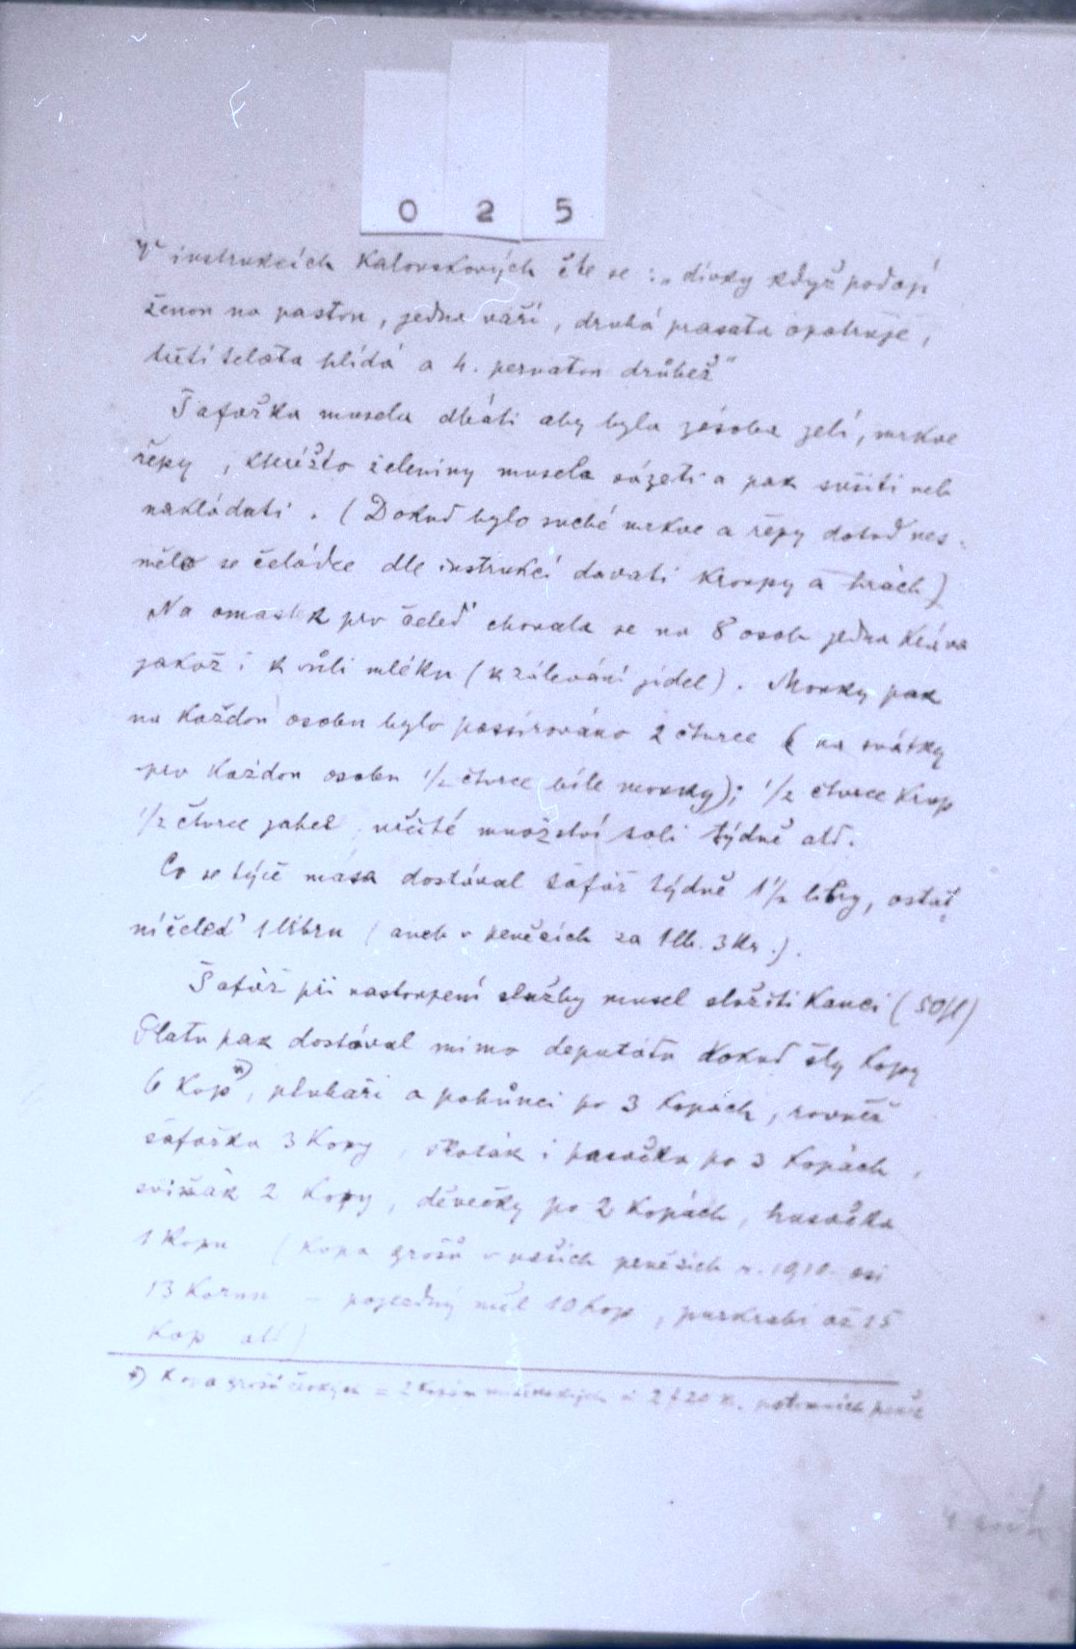 0 2 5
V instrukcích Kalovskových čte se: „dívky když podojí
ženou na pastvu, jedna vaří, druhá prasata opatruje,
třetí telata hlídá a 4. pernatou drůbež"
Šafářka musela dbáti aby byla zásoba zelí, mrkve
řepy, kteréžto zeleniny musela sázeti a pak sušiti neb
nakládati. (Dokud bylo suché mrkve a řepy dotud nes-
mělo se čeládce dle instrukcí davati kroupy a hrách)
Na omastek pro čeleď chovala se na 8 osob jedna kráva
jakož i k vůli mléku (k zálevání jídel). Mouky pak
na každou osobu bylo passirováno 2 čtvrce (na svátky
pro každou osobu 1/2 čtvrce bílé mouky); 1/2 čtvrce krup
1/2 čtvrce jahel, určité množství soli týdně atd.
Co se týče masa dostával šafář týdně 1 1/2 libry, ostat
ní čeleď 1 libru (aneb v penězích za 1 lb. 3 Kr.).
Šafář při nastoupení služby musel složiti kauci (50 fl)
Platu pak dostával mimo deputátu dokud šly kopy
6 kop*), pluhaři a pohůnci po 3 kopách, rovněž
šafářka 3 kopy, skoták i pasačka po 3 kopách,
sviňák 2 kopy, děvečky po 2 kopách, husačka
1 kopu (kopa grošů v našich penězích r. 1910. asi
13 korun – pojezdný měl 10 kop, purkrabí až 15
kop atd)
*) Kopa grošů českých = 2 kopám míšeňským 2 f 20 k.